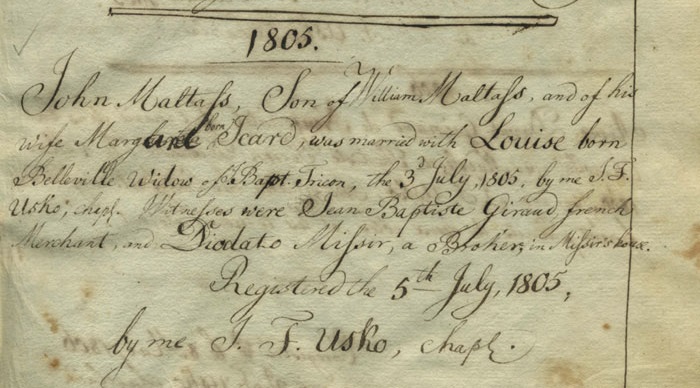 1805.
John Maltass, Son of William Maltass, and of his
wife Margaret, born Icard, was married with Louise born
Belleville Widow of J. Bapt. Tricon, the 3d July, 1805, by me J. F.
Usko, chapl. Witnesses were Jean Baptiste Giraud french
Merchant, and Diodato Missir, a Broker, in Missir's house.
Registered the 5th July, 1805,
by me J. F. Usko, chapl.